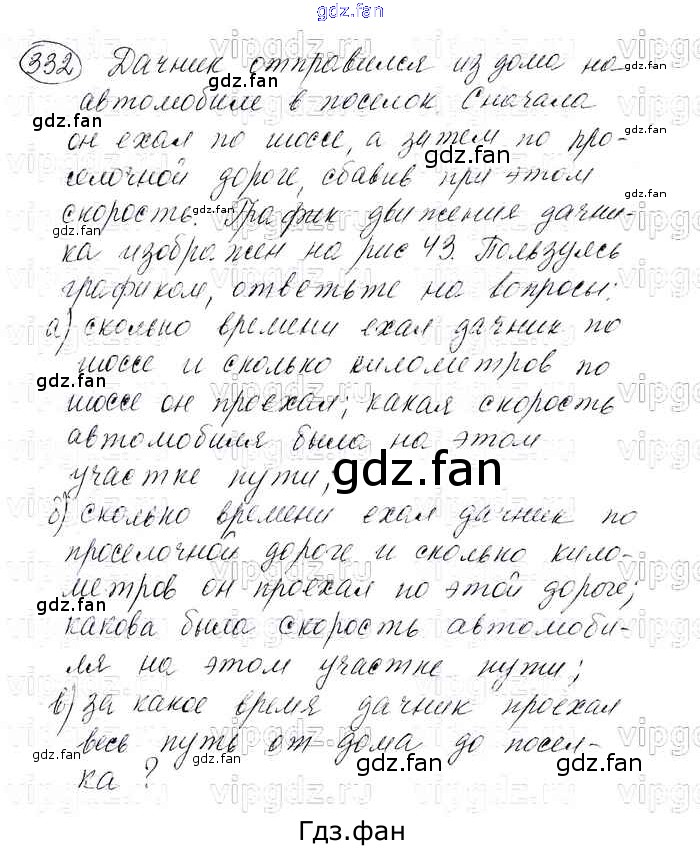 gdz.fan
332 Дачник отправился из дома на
автомобиле в поселок. Сначала
он ехал по шоссе, а затем по про-
селочной дороге, сбавив при этом
скорость. График движения дачни-
ка изображен на рис 43. Пользуясь
графиком, ответьте на вопросы:
а) сколько времени ехал дачник по
шоссе и сколько километров по
шоссе он проехал; какая скорость
автомобиля была на этом
участке пути;
б) сколько времени ехал дачник по
проселочной дороге и сколько кило-
метров он проехал по этой дороге;
какова была скорость автомоби-
ля на этом участке пути;
в) за какое время дачник проехал
весь путь от дома до посел-
ка?
Гдз.фан